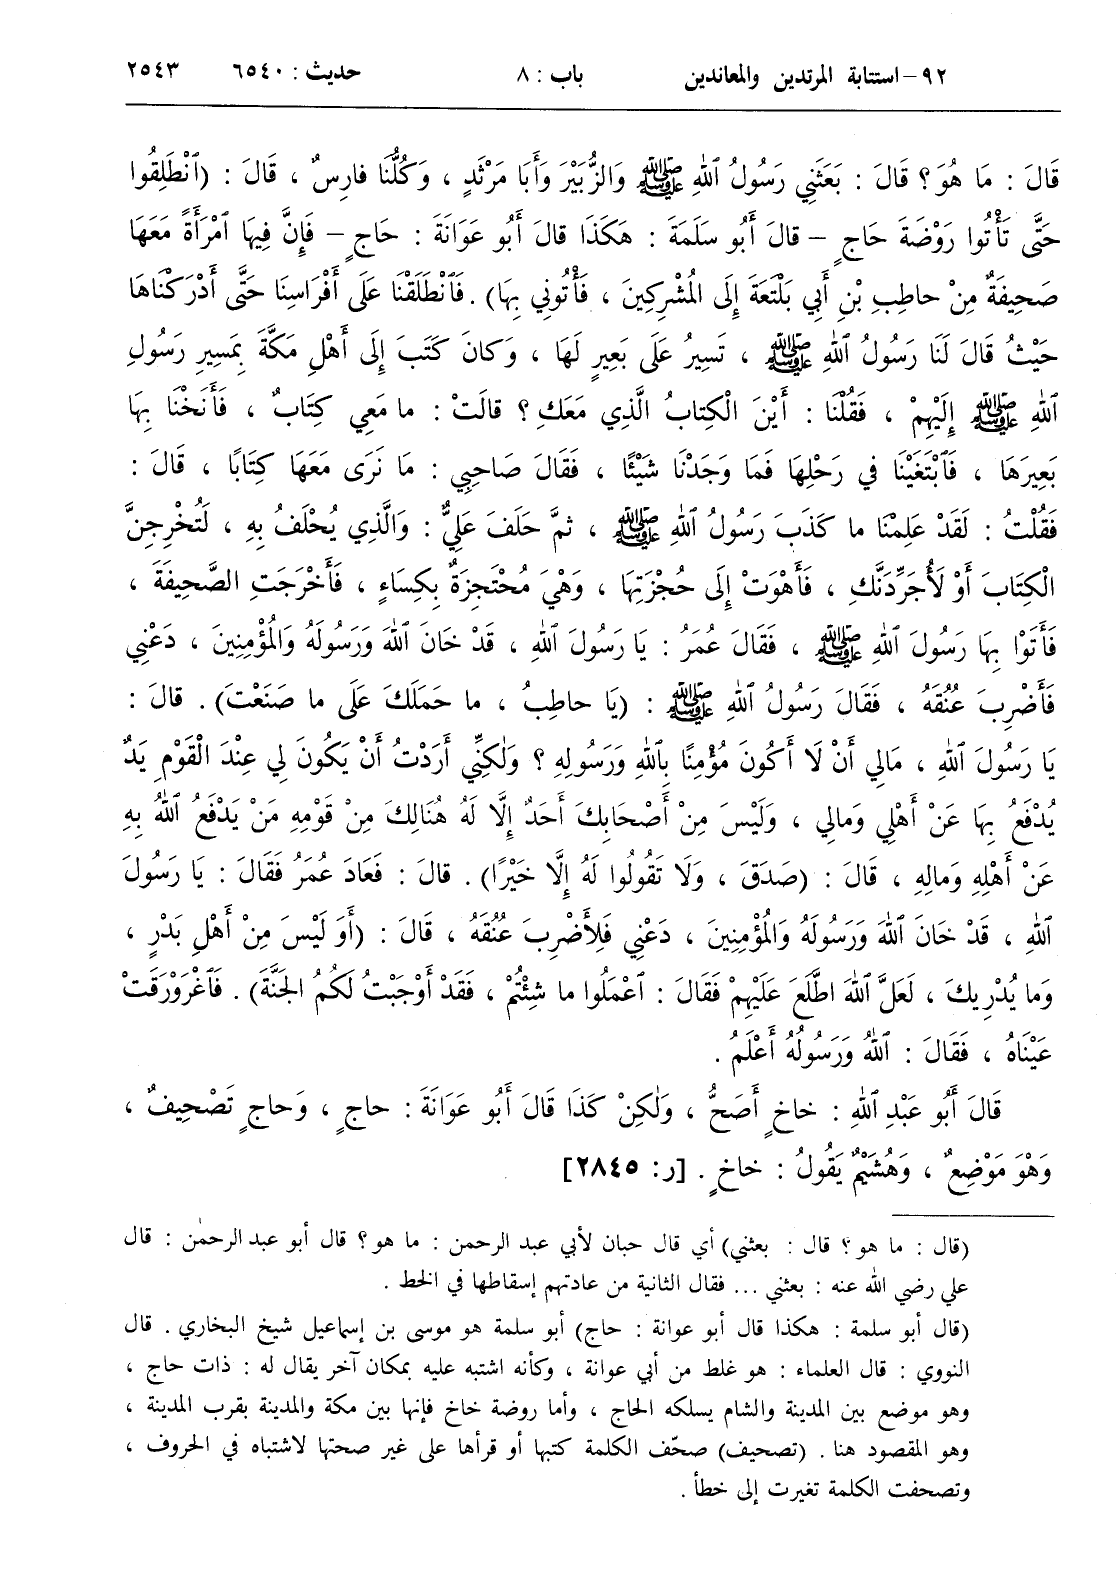 ٩٢- استتابة المرتدين والمعاندين باب : ٨ حديث : ٦٥٤٠ ٢٥٤٣
قَالَ : مَا هُوَ ؟ قَالَ : بَعَثَنِي رَسُولُ ٱللهِ ﷺ وَالزُّبَيْرَ وَأَبَا مَرْثَدٍ ، وَكُلُّنَا فارِسٌ ، قَالَ : (ٱنْطَلِقُوا
حَتَّى تَأْتُوا رَوْضَةَ حَاجٍ – قالَ أَبُو سَلَمَةَ : هَكَذَا قالَ أَبُو عَوَانَةَ : حَاجٍ – فَإِنَّ فِيهَا ٱمْرَأَةً مَعَهَا
صَحِيفَةٌ مِنْ حاطِبِ بْنِ أَبِي بَلْتَعَةَ إِلَى المُشْرِكِينَ ، فَأْتُونِي بِهَا) . فَٱنْطَلَقْنَا عَلَى أَفْرَاسِنَا حَتَّى أَدْرَكْنَاهَا
حَيْثُ قَالَ لَنَا رَسُولُ ٱللهِ ﷺ ، تَسِيرُ عَلَى بَعِيرٍ لَهَا ، وَكانَ كَتَبَ إِلَى أَهْلِ مَكَّةَ بِمَسِيرِ رَسُولِ
ٱللهِ ﷺ إِلَيْهِمْ ، فَقُلْنَا : أَيْنَ الْكِتَابُ الَّذِي مَعَكِ ؟ قالَتْ : ما مَعِي كِتَابٌ ، فَأَنَخْنَا بِهَا
بَعِيرَهَا ، فَٱبْتَغَيْنَا في رَحْلِهَا فَمَا وَجَدْنَا شَيْئًا ، فَقَالَ صَاحِبِي : مَا نَرَى مَعَهَا كِتَابًا ، قَالَ :
فَقُلْتُ : لَقَدْ عَلِمْنَا ما كَذَبَ رَسُولُ ٱللهِ ﷺ ، ثمَّ حَلَفَ عَلِيٌّ : وَالَّذِي يُحْلَفُ بِهِ ، لَتُخْرِجِنَّ
الْكِتَابَ أَوْ لَأُجَرِّدَنَّكِ ، فَأَهْوَتْ إِلَى حُجْزَتِهَا ، وَهْيَ مُحْتَجِزَةٌ بِكِسَاءٍ ، فَأَخْرَجَتِ الصَّحِيفَةَ ،
فَأَتَوْا بِهَا رَسُولَ ٱللهِ ﷺ ، فَقَالَ عُمَرُ : يَا رَسُولَ ٱللهِ ، قَدْ خَانَ ٱللهَ وَرَسُولَهُ وَالمُؤْمِنِينَ ، دَعْنِي
فَأَضْرِبَ عُنُقَهُ ، فَقَالَ رَسُولُ ٱللهِ ﷺ : (يَا حاطِبُ ، ما حَمَلَكَ عَلَى ما صَنَعْتَ) . قالَ :
يَا رَسُولَ ٱللهِ ، مَالِي أَنْ لَا أَكُونَ مُؤْمِنًا بِٱللهِ وَرَسُولِهِ ؟ وَلٰكِنِّي أَرَدْتُ أَنْ يَكُونَ لِي عِنْدَ الْقَوْمِ يَدٌ
يُدْفَعُ بِهَا عَنْ أَهْلِي وَمالِي ، وَلَيْسَ مِنْ أَصْحَابِكَ أَحَدٌ إِلَّا لَهُ هُنَالِكَ مِنْ قَوْمِهِ مَنْ يَدْفَعُ ٱللهُ بِهِ
عَنْ أَهْلِهِ وَمالِهِ ، قَالَ : (صَدَقَ ، وَلَا تَقُولُوا لَهُ إِلَّا خَيْرًا) . قالَ : فَعَادَ عُمَرُ فَقَالَ : يَا رَسُولَ
ٱللهِ ، قَدْ خَانَ ٱللهَ وَرَسُولَهُ وَالمُؤْمِنِينَ ، دَعْنِي فَلِأَضْرِبَ عُنُقَهُ ، قَالَ : (أَوَ لَيْسَ مِنْ أَهْلِ بَدْرٍ ،
وَما يُدْرِيكَ ، لَعَلَّ ٱللهَ اطَّلَعَ عَلَيْهِمْ فَقَالَ : ٱعْمَلُوا ما شِئْتُمْ ، فَقَدْ أَوْجَبْتُ لَكُمُ الجَنَّةَ) . فَٱغْرَوْرَقَتْ
عَيْنَاهُ ، فَقَالَ : ٱللهُ وَرَسُولُهُ أَعْلَمُ .
قَالَ أَبُو عَبْدِ ٱللهِ : خاخٍ أَصَحُّ ، وَلٰكِنْ كَذَا قَالَ أَبُو عَوَانَةَ : حاجٍ ، وَحاجٍ تَصْحِيفٌ ،
وَهْوَ مَوْضِعٌ ، وَهُشَيْمٌ يَقُولُ : خاخٍ . [ر: ٢٨٤٥]
(قال : ما هو ؟ قال : بعثني) أي قال حبان لأبي عبد الرحمن : ما هو ؟ قال أبو عبد الرحمٰن : قال
علي رضي الله عنه : بعثني ... فقال الثانية من عادتهم إسقاطها في الخط .
(قال أبو سلمة : هكذا قال أبو عوانة : حاج) أبو سلمة هو موسى بن إسماعيل شيخ البخاري . قال
النووي : قال العلماء : هو غلط من أبي عوانة ، وكأنه اشتبه عليه بمكان آخر يقال له : ذات حاج ،
وهو موضع بين المدينة والشام يسلكه الحاج ، وأما روضة خاخ فإنها بين مكة والمدينة بقرب المدينة ،
وهو المقصود هنا . (تصحيف) صحّف الكلمة كتبها أو قرأها على غير صحتها لاشتباه في الحروف ،
وتصحفت الكلمة تغيرت إلى خطأ .